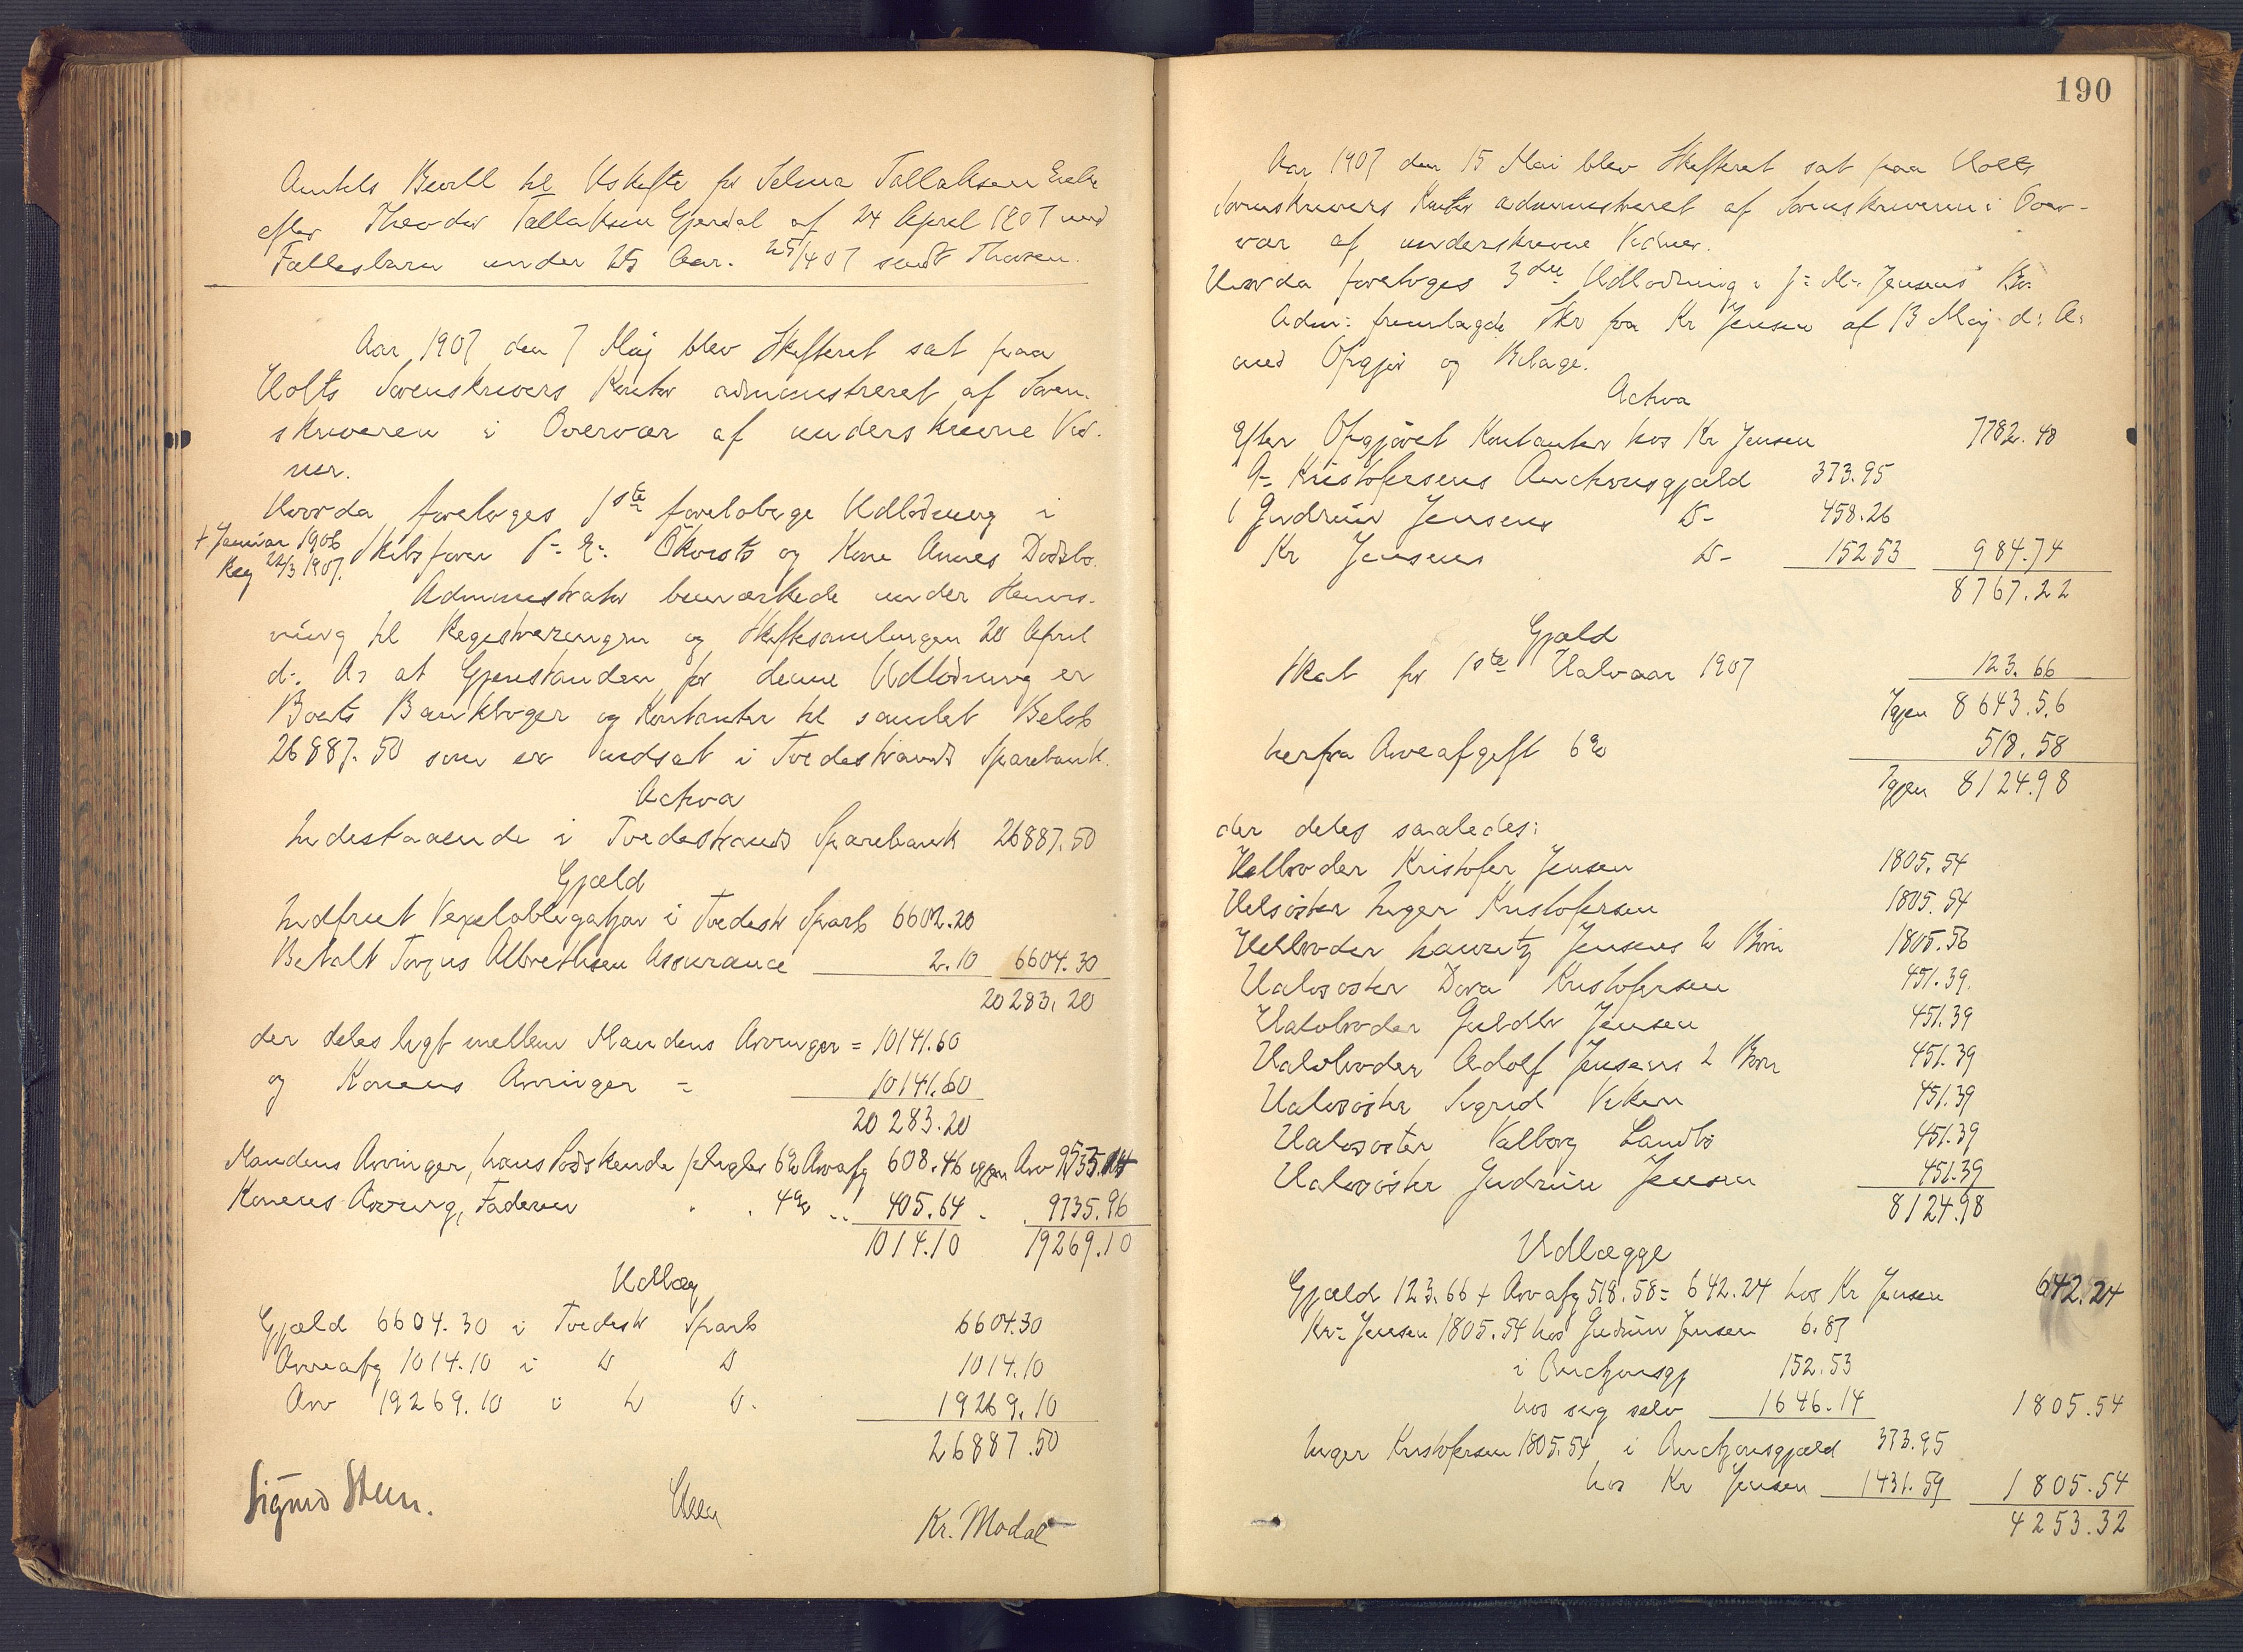 Amtets Bevill til Uskifte for Selma Tallaksen Enke
efter Theodor Tallaksen Gjerdal af 24 April 1907 med
Fællesbarn under 25 Aar. 25/4 07 sendt Thorsen.
Aar 1907 den 7 Maj blev Skifteret sat paa
Holts Sorenskrivers Kontor administreret af Soren-
skriveren i Overvær af underskrevne Vid-
ner.
Hvorda foretoges 1ste foreløbige Udlodning i
+ Januar 1906
Reg 22/3 1907.
Skibsfører og Kone Annes Dødsbo.
Administrator bemærkede under Henvis-
ning til Registreringen og Skiftesamlingen 20 April
d. A. at Gjenstanden for denne Udlodning er
Boets Bankbøger og Kontanter til samlet Beløb
26887.50 som er indsat i Tvedestrands Sparebank.
Activa
Indestaaende i Tvedestrands Sparebank 26887.50
Gjæld
Indfriet Vexelobligation i Tvedestr Sparb 6602.20
Betalt Torjus Albrethsen Assurance 2.10 6604.30
20283.20
der deles ligt mellem Mandens Arvinger = 10141.60
og Konens Arvinger = 10141.60
20283.20
Mandens Arvinger, hans Sødskende 6% Arveafg 608.46 igjen Arv
Konens Arving, Faderen " " 4% " " 405.64 " " 9735.96
1014.10 19269.10
Udlæg
Gjæld 6604.30 i Tvedestr Sparb 6604.30
Arveafg 1014.10 i D D 1014.10
Arv 19269.10 i D D. 19269.10
26887.50
Sigurd Steen.
Kr. Modal
190
Aar 1907 den 15 Mai blev Skifteret sat paa Holts
Sorenskrivers Kontor administreret af Sorenskriveren i Over-
vær af underskrevne Vidner.
Hvorda foretoges 3die Udlodning i J. M. Jensens Bo.
Adm. fremlagde Skr fra Kr Jensen af 13 Maj d. A.
med Opgjør og Bilage.
Activa
Efter Opgjøret Kontanter hos Kr Jensen 7782.48
Kristofersens Auctionsgjæld 373.95
Gudrun Jensens D- 458.26
Kr Jensens D- 152 53 984.74
8767.22
Gjæld
Skat for 1ste Halvaar 1907 123.66
Igjen 8643.56
herfra Arveafgift 6% 518.58
Igjen 8124.98
der deles saaledes:
Helbroder Kristofer Jensen 1805.54
Helsøster Inger Kristofersen 1805.54
Helbroder Lauritz Jensens 2 Børn 1805.56
Halvsøster Dora Kristofersen 451.39.
Halvbroder Jensen 451.39
Halvbroder Adolf Jensens 2 Børn 451.39
Halvsøster Sigrid Viken 451.39
Halvsøster Valborg Landbø 451.39
Halvsøster Gudrun Jensen 451.39
8124.98
Udlægge
Gjæld 123.66 + Arvafg 518.58 = 642.24 hos Kr Jensen 642.24
Kr. Jensen 1805.54 hos Gudrun Jensen 6.87
i Auctionsgj 152.53
hos sig selv 1646.14 1805.54
Inger Kristofersen 1805.54 i Auctionsgjæld 373.95
hos Kr Jensen 1431.59 1805.54
4253.32